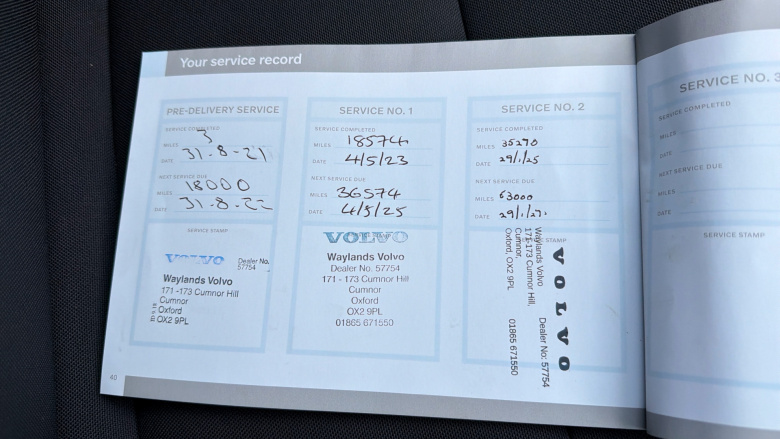 Your service record
PRE-DELIVERY SERVICE
SERVICE COMPLETED
MILES 3
DATE 31-8-21
NEXT SERVICE DUE
MILES 18000
DATE 31-8-22
SERVICE STAMP
VOLVO Dealer No. 57754
Waylands Volvo
171-173 Cumnor Hill
Cumnor
Oxford
OX2 9PL
SERVICE NO. 1
SERVICE COMPLETED
MILES 18574
DATE 4/5/23
NEXT SERVICE DUE
MILES 36574
DATE 4/5/25
VOLVO
Waylands Volvo
Dealer No. 57754
171 - 173 Cumnor Hill
Cumnor
Oxford
OX2 9PL
01865 671550
SERVICE NO. 2
SERVICE COMPLETED
MILES 35270
DATE 29/1/25
NEXT SERVICE DUE
MILES 63000
DATE 29/1/27
STAMP
VOLVO
Waylands Volvo Dealer No: 57754
171-173 Cumnor Hill,
Cumnor,
Oxford, OX2 9PL 01865 671550
SERVICE NO. 3
SERVICE COMPLETED
MILES
DATE
NEXT SERVICE DUE
MILES
DATE
SERVICE STAMP
40